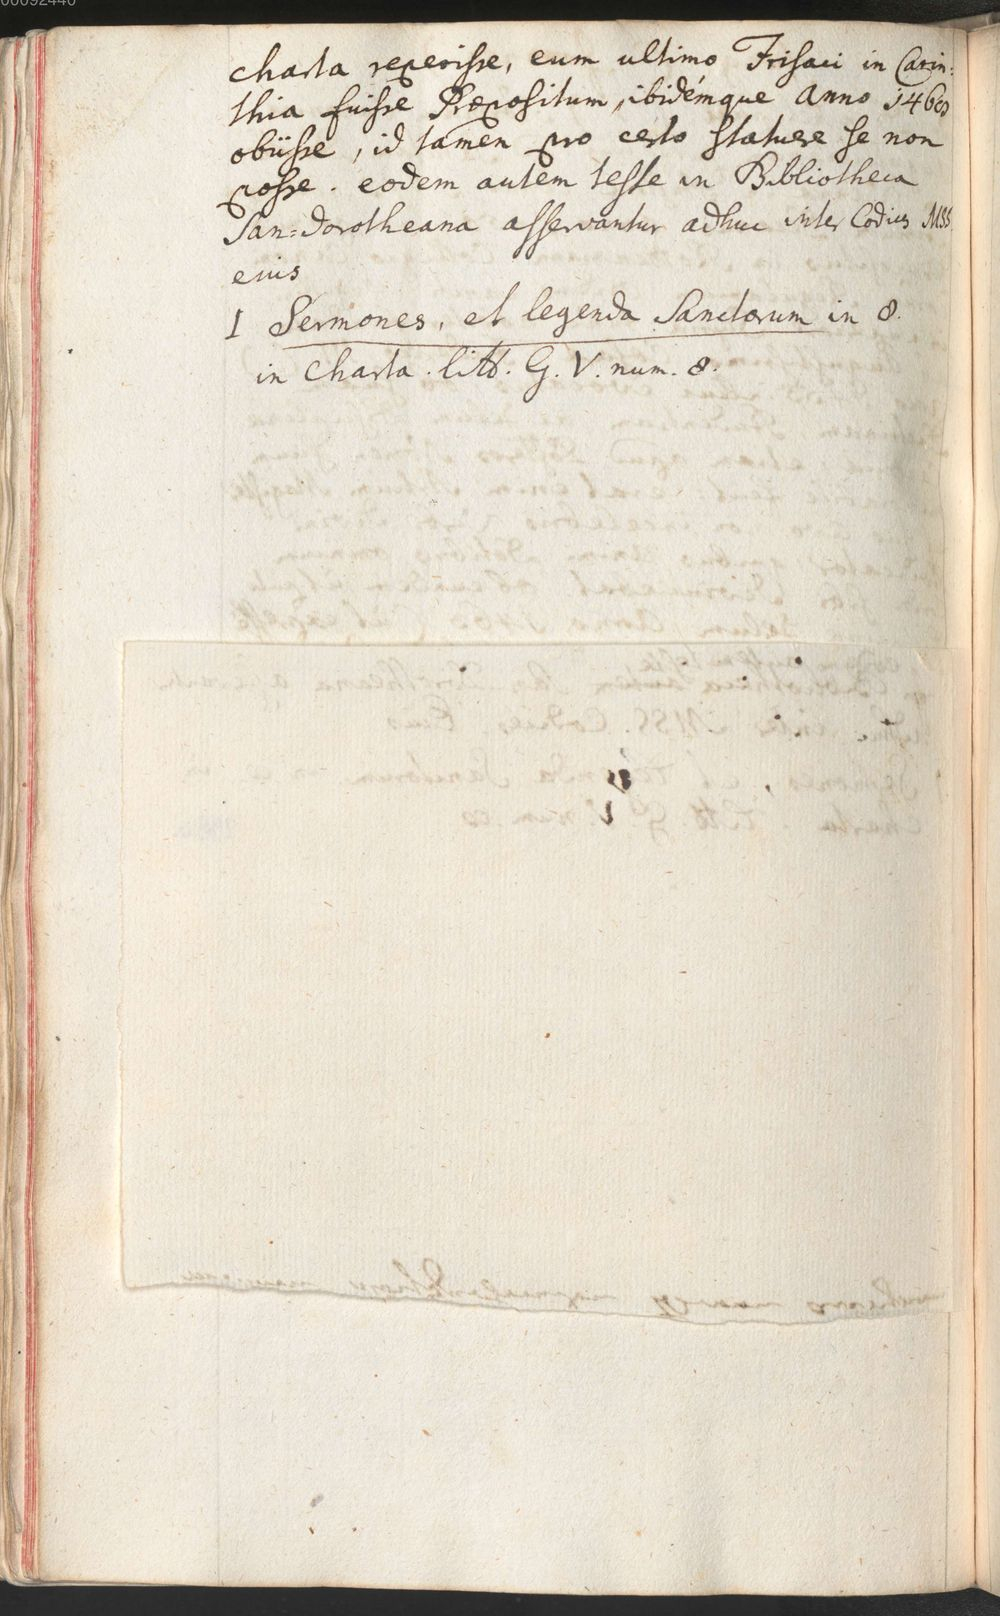 00092440
charta reperisse, eum ultimo Frisaci in Carin=
thia fuisse Præpositum, ibidémque Anno 1460
obiisse, id tamen pro certo statuere se non
posse. eodem autem teste in Bibliotheca
San=Dorotheana asservantur adhuc inter Codices MSS
eius
1 Sermones, et legenda Sanctorum in 8.
in Charta. litt. G. V. num. 8.